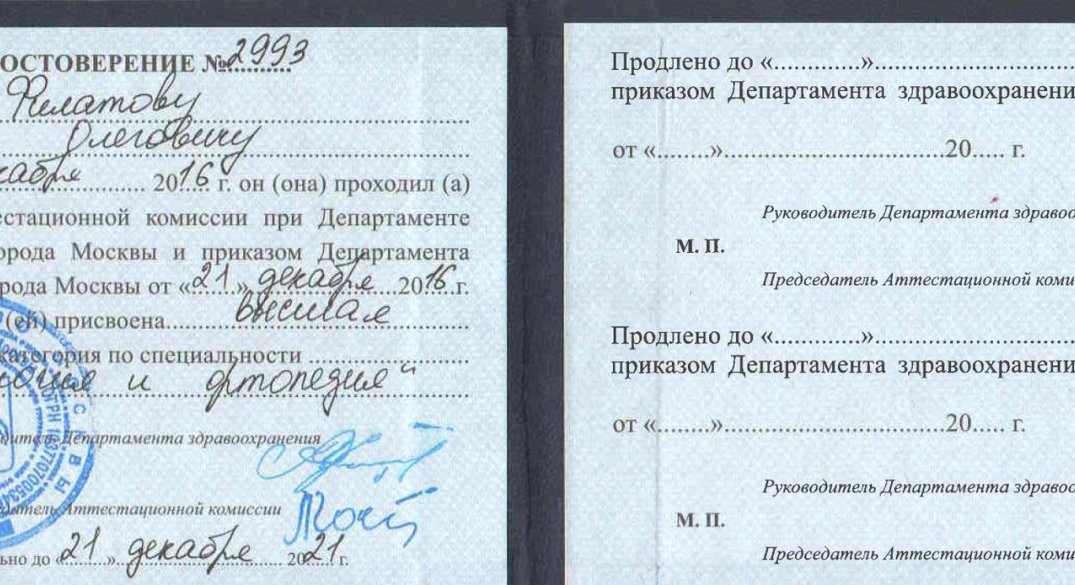 ОСТОВЕРЕНИЕ №2993
Филатову
Олеговичу
кабря 2016 г. он (она) проходил (а)
естационной комиссии при Департаменте
орода Москвы и приказом Департамента
рода Москвы от «21» декабря 2016 г.
(ей) присвоена высшая
категория по специальности
логия и ортопедия"
дитель Департамента здравоохранения
датель Аттестационной комиссии
ьно до «21» декабря 2021 г.
Продлено до «.............»
приказом Департамента здравоохранени
от «.........» 20..... г.
Руководитель Департамента здравоо
М. П.
Председатель Аттестационной коми
Продлено до «.............»
приказом Департамента здравоохранени
от «.........» 20..... г.
Руководитель Департамента здравоо
М. П.
Председатель Аттестационной коми